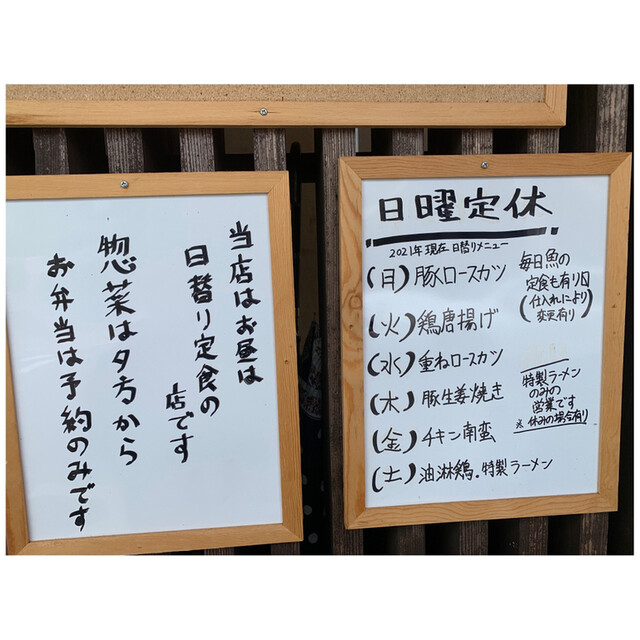 当店はお昼は
日替り定食の
店です
惣菜は夕方から
お弁当は予約のみです
日曜定休
2021年現在 日替りメニュー
(日)豚ロースカツ
(火)鶏唐揚げ
(水)重ねロースカツ
(木)豚生姜焼き
(金)チキン南蛮
(土)油淋鶏.特製ラーメン
毎日魚の
定食も有り〼
(仕入れにより
変更有り)
特製ラーメン
のみの
営業です
※休みの場合有り